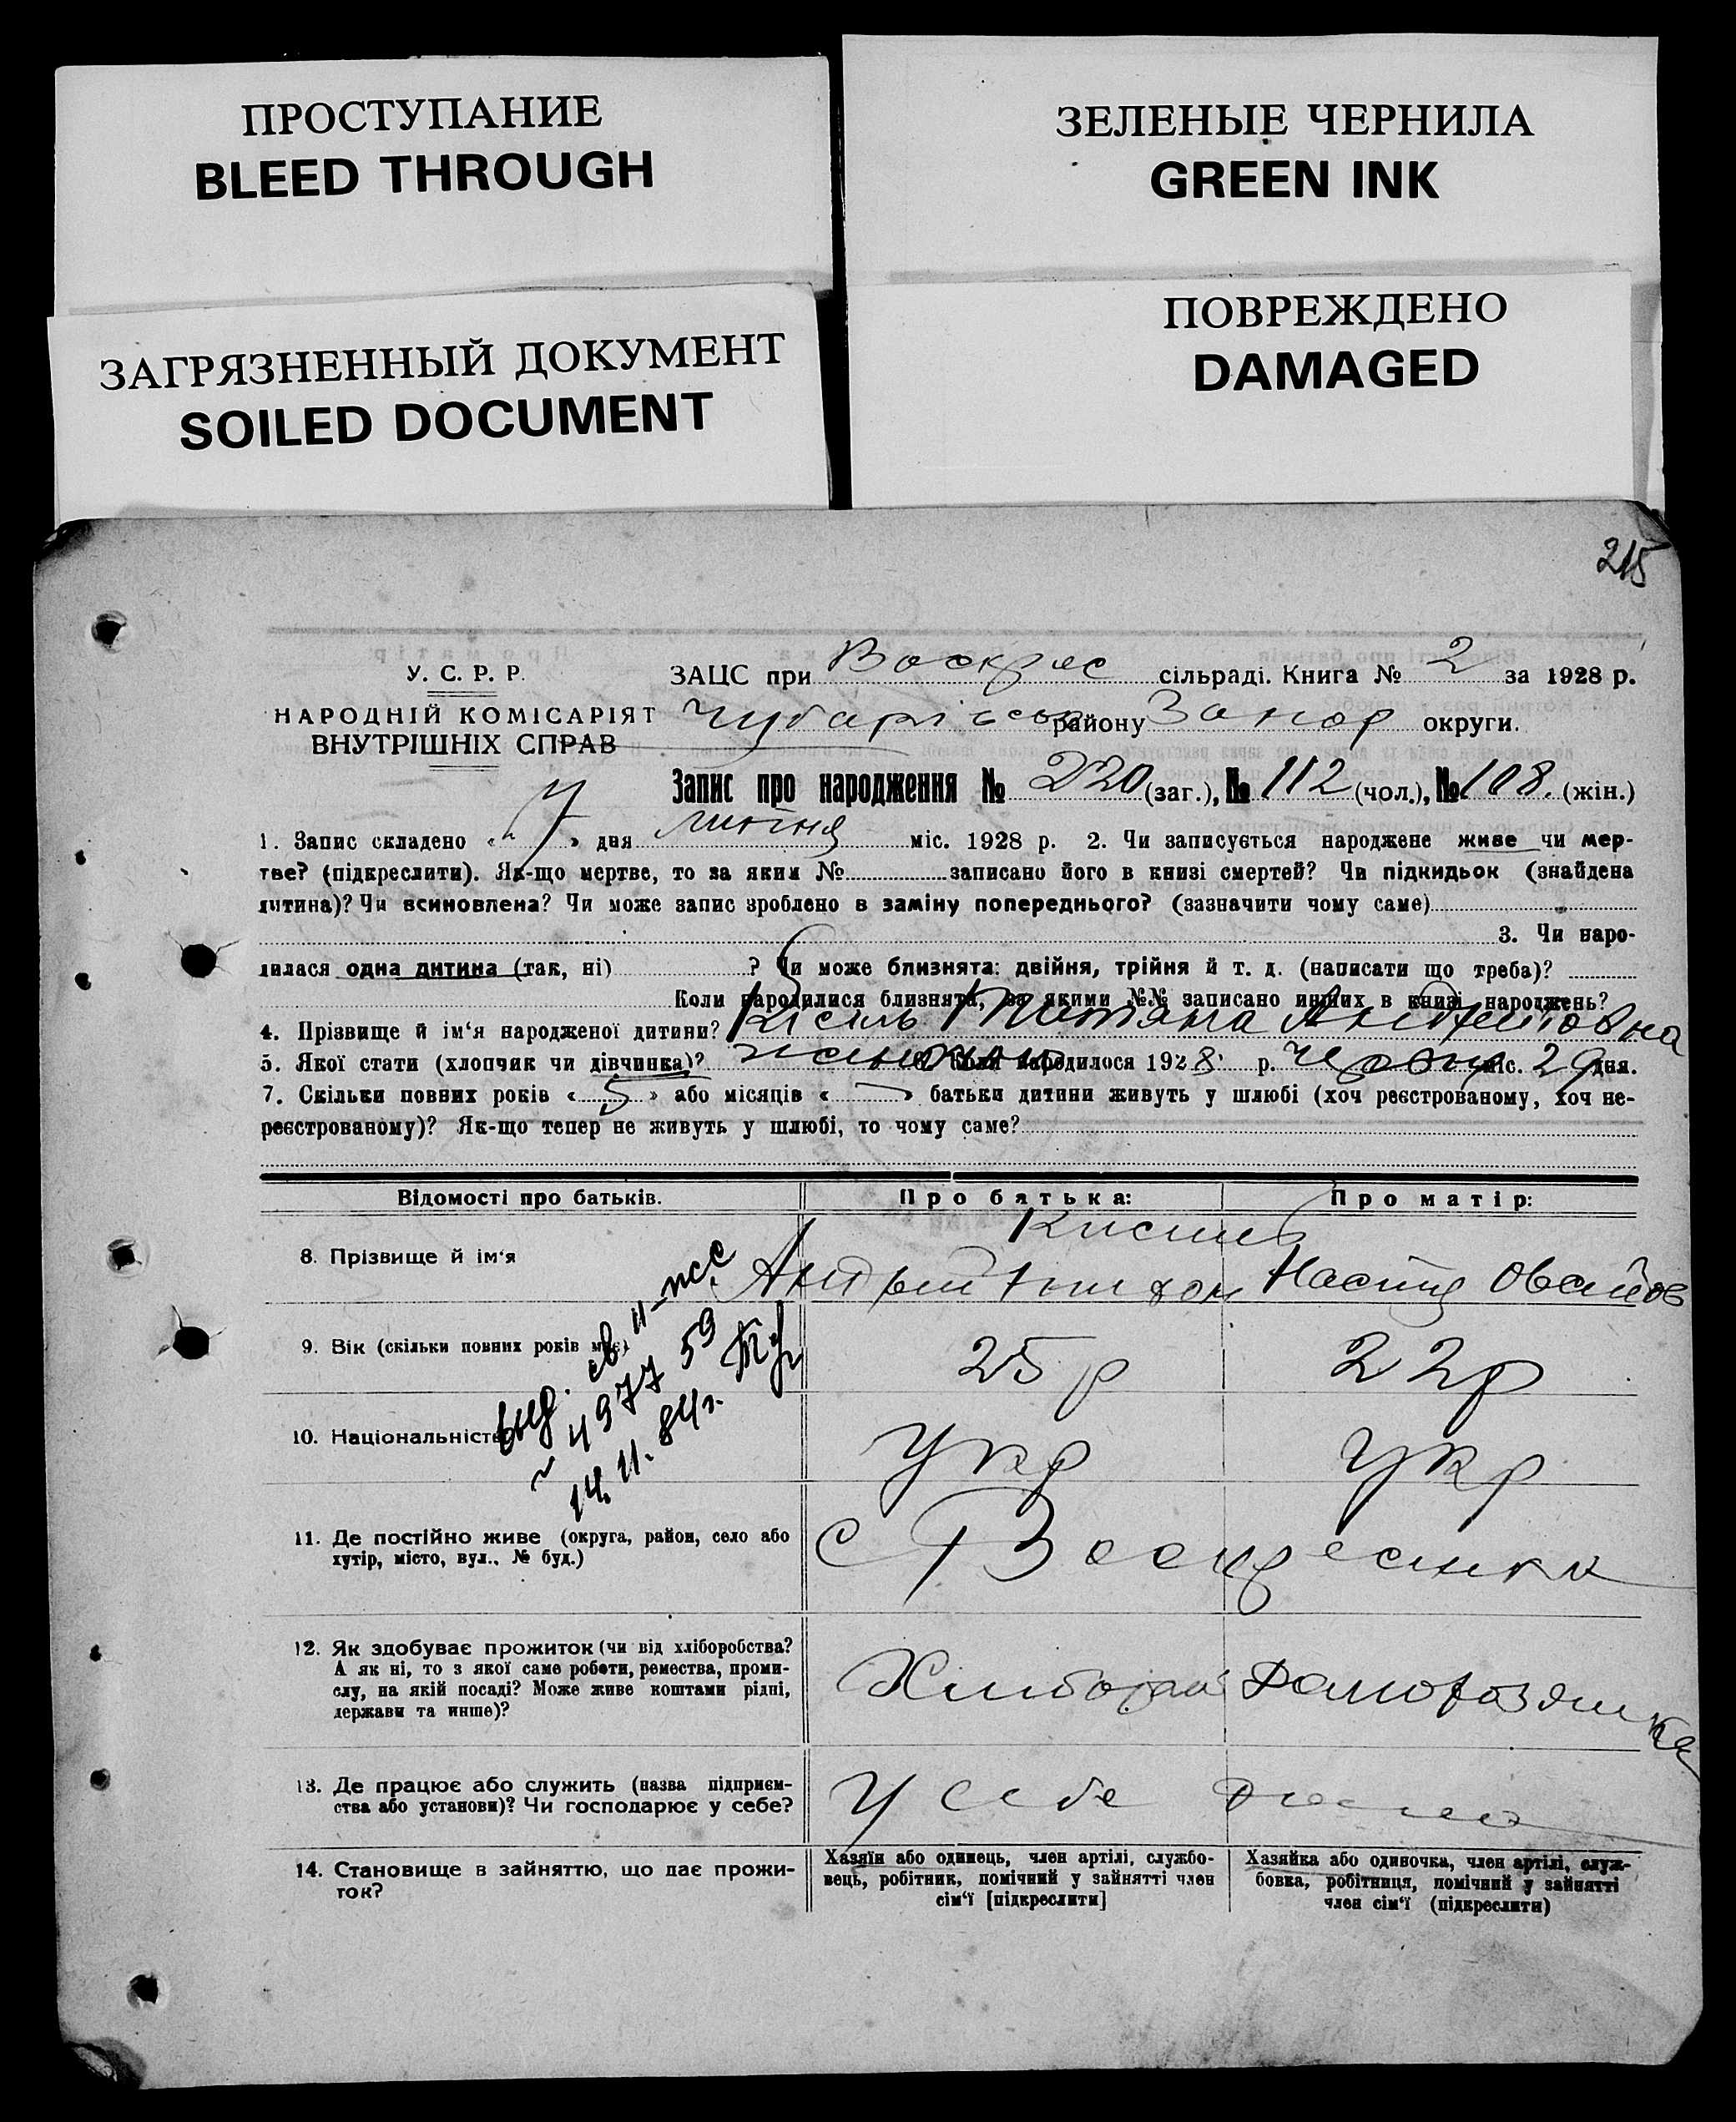 ПРОСТУПАНИЕ
BLEED THROUGH
ЗЕЛЕНЫЕ ЧЕРНИЛА
GREEN INK
ЗАГРЯЗНЕННЫЙ ДОКУМЕНТ
SOILED DOCUMENT
ПОВРЕЖДЕНО
DAMAGED
215
У. С. Р. Р.
НАРОДНІЙ КОМІСАРІЯТ
ВНУТРІШНІХ СПРАВ
ЗАЦС при Воскрес сільраді. Книга № 2 за 1928 р.
Чубарівськ району Запор округи.
Запис про народження № 220 (заг.), № 112 (чол.), № 108. (жін.)
1. Запис складено « 7 » дня липня міс. 1928 р. 2. Чи записується народжене живе чи мер-
тве? (підкреслити). Як-що мертве, то за яким № записано його в книзі смертей? Чи підкидьок (знайдена
дитина)? Чи всиновлена? Чи може запис зроблено в заміну попереднього? (зазначити чому саме)
3. Чи наро-
дилася одна дитина (так, ні) ? Чи може близнята: двійня, трійня й т. д. (написати що треба)?
Коли народилися близнята, за якими №№ записано инших в книзі народжень?
4. Прізвище й ім'я народженої дитини? Кісиль Титяна Андреювна
5. Якої стати (хлопчик чи дівчинка)? 6. Коли народилося 1928 р. Червня міс. 29 дня.
7. Скільки повних років « 5 » або місяців « » батьки дитини живуть у шлюбі (хоч реєстрованому, хоч не-
реєстрованому)? Як-що тепер не живуть у шлюбі, то чому саме?
Відомості про батьків. Про батька: Про матір:
Кисиль
8. Прізвище й ім'я Андрей Настя
9. Вік (скільки повних років має) 25 р 22 р
10. Національність Укр Укр
вид. св. II-псс
№ 497759
14.11.84г.
11. Де постійно живе (округа, район, село або
хутір, місто, вул., № буд.)
с Воскресинка
12. Як здобуває прожиток (чи від хліборобства?
А як ні, то з якої саме роботи, ремества, проми-
слу, на якій посаді? Може живе коштами рідні,
держави та инше)?
Хлибороб Домохозяика
13. Де працює або служить (назва підприєм-
ства або установи)? Чи господарює у себе?
У себе дома
14. Становище в зайняттю, що дає прожи-
ток?
Хазяїн або одинець, член артілі, службо-
вець, робітник, помічний у зайнятті член
сім'ї [підкреслити]
Хазяйка або одиночка, член артілі, служ-
бовка, робітниця, помічний у зайнятті
член сім'ї (підкреслити)